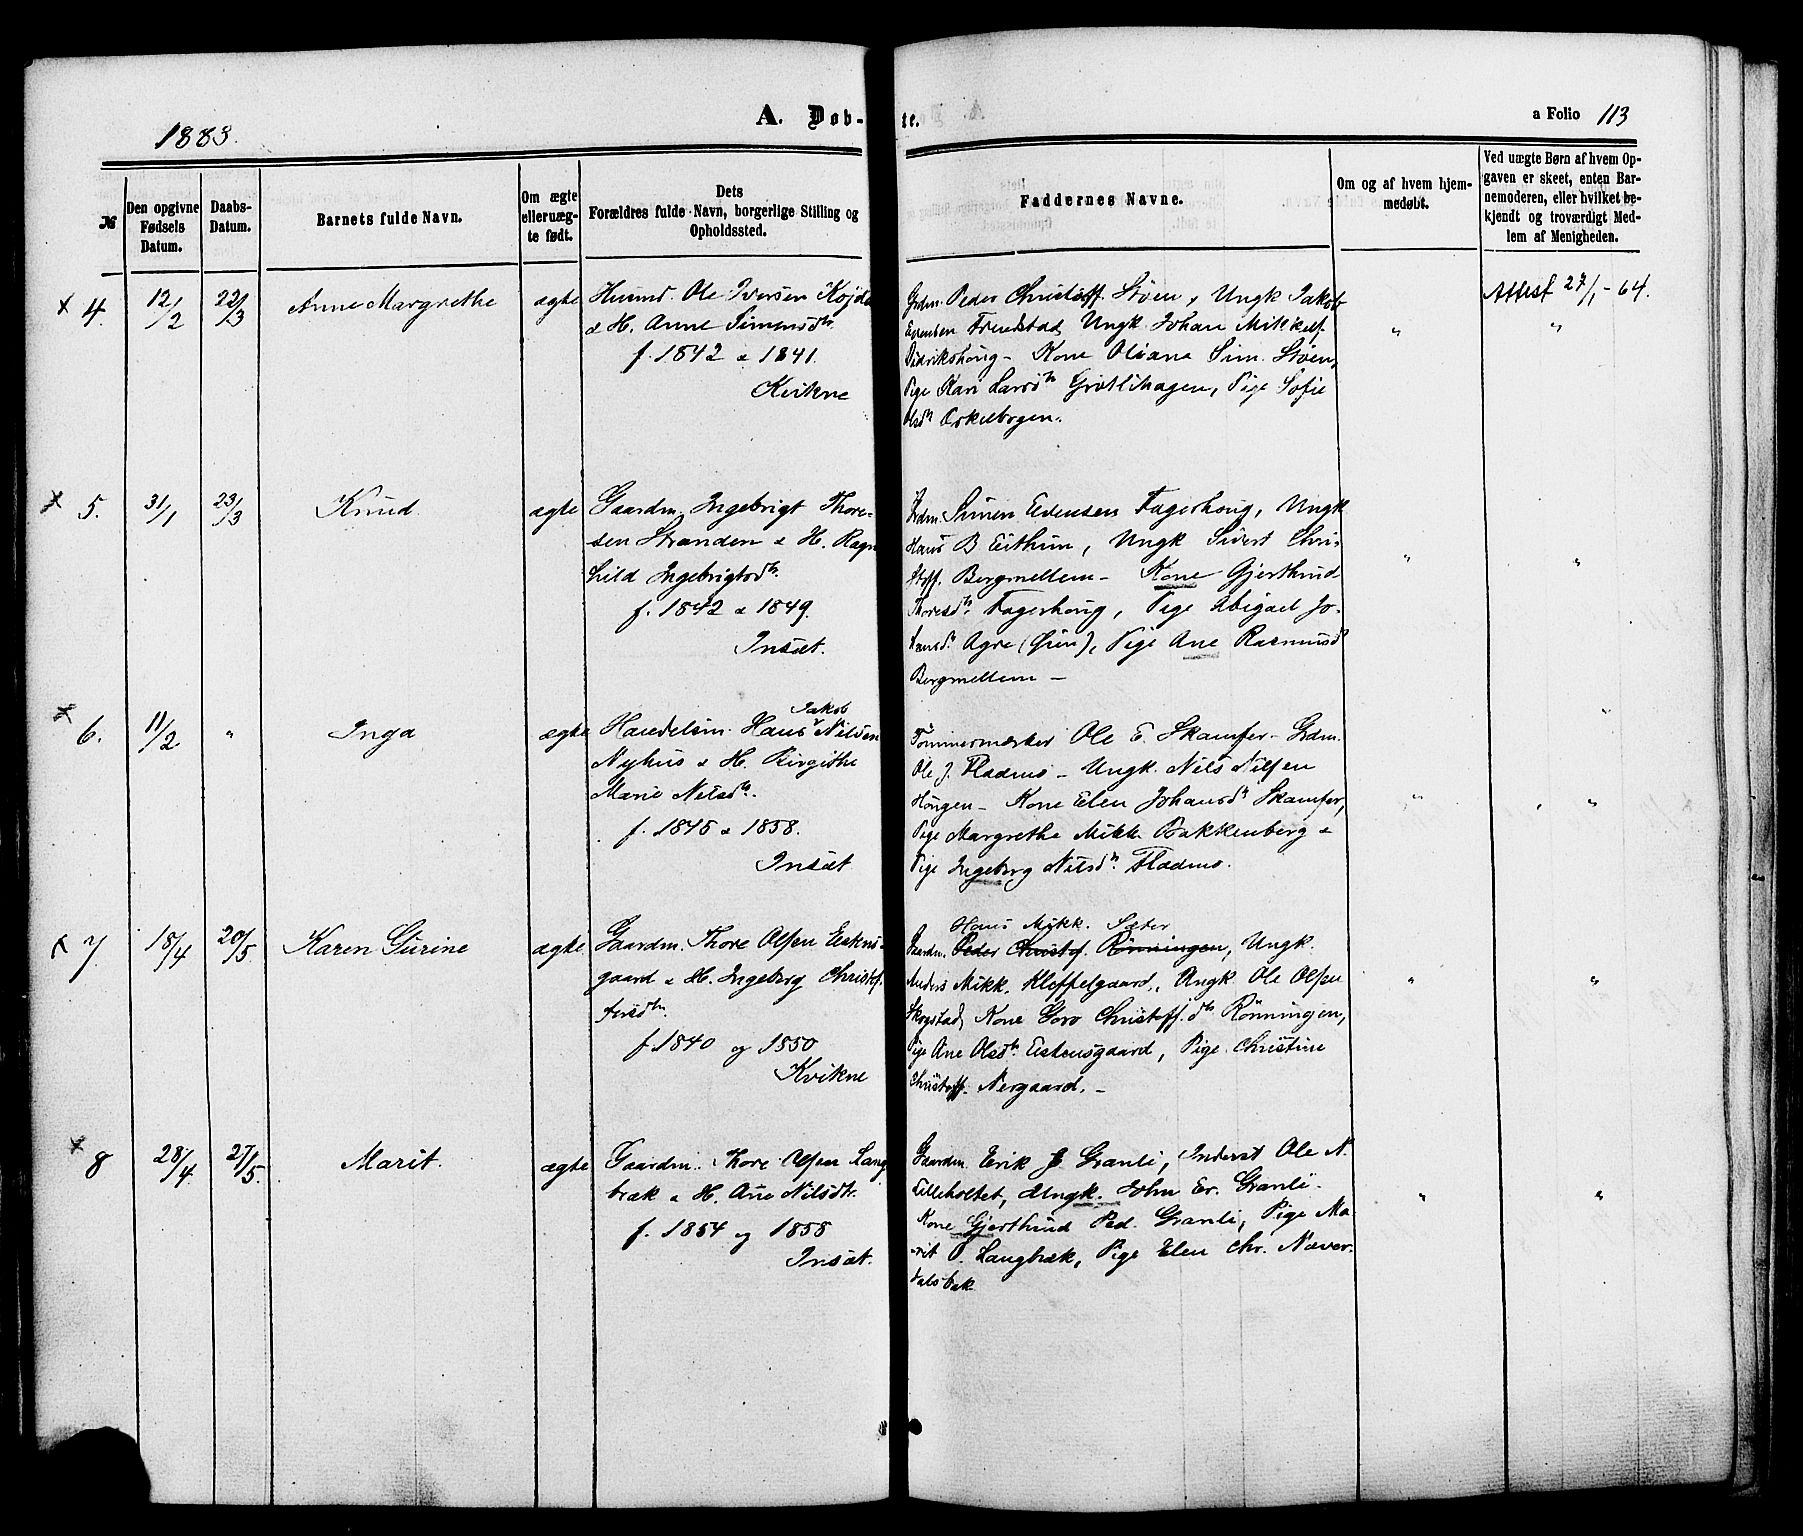 1883.
A. Døb-
te.
a Folio 113
№
Den opgivne Fødsels Datum.
Daabs-Datum.
Barnets fulde Navn.
Om ægte eller uæg-te født.
Dets Forældres fulde Navn, borgerlige Stilling og Opholdssted.
Faddernes Navne.
Om og af hvem hjem-medøbt.
Ved uægte Børn af hvem Op-gaven er skeet, enten Bar-nemoderen, eller hvilket be-kjendt og troværdigt Med-lem af Menigheden.
x 4. 12/2 22/3 Anne Margrethe ægte
Husmd. Ole Iversen
& H. Anne Simensdtr
f. 1842 & 1841.
Kvikne
Grdm. Peder Christoff. Støen, Ungk Jakob
Estensen Frendstad, Ungk. Johan Mikkels.
Didrikshoug - Kone Oliana Sim. Støen,
Pige Kari Larsdtr Grøtlihagen, Pige Sofie
Olsdtr Orkelbogen.
"
Attest 27/1 - 64.
"
x 5. 31/1 23/3 Knud ægte
Gaardm. Ingebrigt Thore-
sen Stranden & H. Ragn
hild Ingebrigtsdtr.
f. 1842 & 1849.
Insæt.
Grdm. Simen Estensen Fagerhoug, Ungk
Hans B Eithun, Ungk Sivert Chri-
stoff. Bergmellem - Kone Gjerthrud
Thoresdtr. Fagerhoug, Pige Abigael Jo-
hansd. Agre (Grin), Pige Ane Rasmusd
Bergmellem -
"
"
x 6. 11/2 " Inga ægte
Jakob
Handelsm. Hans Nilsen
Nyhus & H. Birgithe
Marie Nilsdtr.
f. 1845 & 1858.
Insæt
Tømmermærker Ole E. Skamfer - Grdm.
Ole J. Fladmo - Ungk. Nils Nilsen
Hougen - Kone Elen Johansdtr Skamfer,
Pige Margrethe Mikk. Bakkenberg &
Pige Ingeborg Nilsdtr. Fladmo.
"
"
x 7. 18/4 20/5 Karen Gurine ægte
Gaardm. Thore Olsen Estens-
gaard & H. Ingeborg Christof
fersdtr.
f. 1840 og 1850
Kvikne
Hans Mikk. Sæter
Gaardm. Peder Christof. Rønningen, Ungk.
Anders Mikk. Kleffelgaard, Ungk. Ole Olsen
Skogstad, Kone Goro Christoff.dtr Rønningen,
Pige Ane Olsdtr. Estensgaard, Pige Christine
Christoff. Nergaard. -
"
"
x 8 28/4 27/5. Marit. ægte
Gaardm. Thore Olsen Lang
bræk & H. Ane Nilsdtr.
f. 1854 og 1858
Insæt.
Gaardm. Erik J. Granli, Inderst Ole N.
Lilleholtet, Ungk. John Er. Granli.
Kone Gjerthrud Ped. Granli, Pige Ma-
rit O. Langbræk, Pige Elen Chr. Næver-
dalsbak
"
"